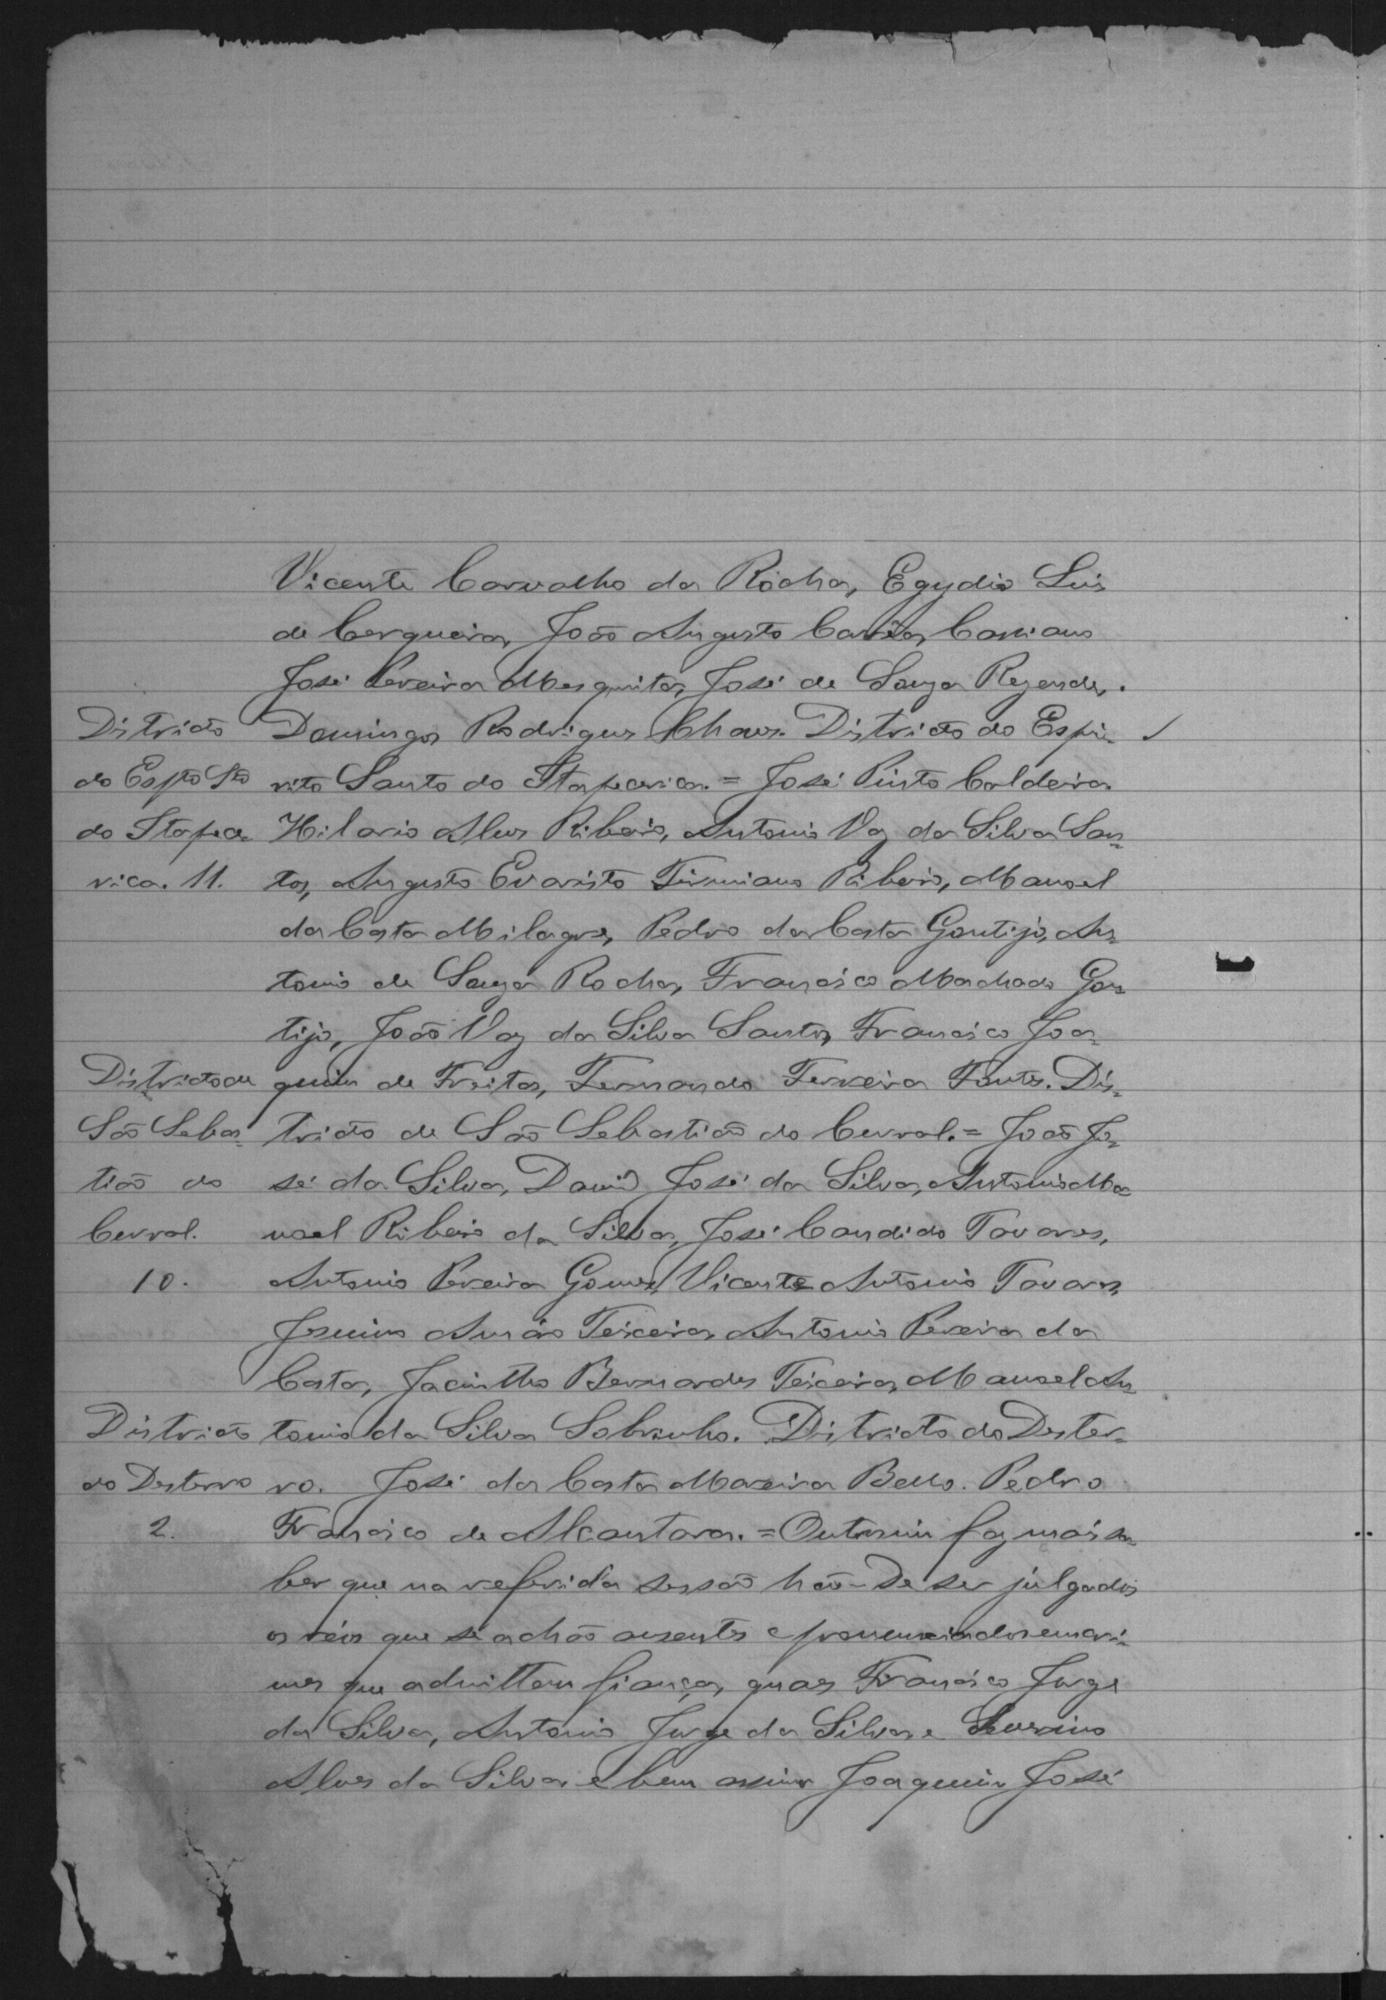 Vicente Carvalho da Rocha, Egydio Luis
de Cerqueira, João Augusto Cassiano
José Pereira Mesquita, José de Souza Rezende,
Districto Domingos Rodrigues Chaves. Districto do Espi-
do Espto Sto rito Santo do Itapecerica. = José Pinto Caldeira
do Itapece- Hilario Alves Ribeiro, Antonio Vaz da Silva San-
rica. 11. tos, Augusto Evaristo Firmiano Ribeiro, Manoel
da Costa Milagres, Pedro da Costa Gontijo, An-
tonio de Souza Rocha, Francisco Machado Gon-
tijo, João Vaz da Silva Santos, Francisco Joa-
Districto de quim de Freitas, Fernando Ferreira Fontes. Dis-
São Sebas- tricto de São Sebastião do Curral. = João Jo-
tião do sé da Silva, David José da Silva, Antonio Ma-
Curral. noel Ribeiro da Silva, José Candido Tavares,
10. Antonio Pereira Gomes, Vicente Antonio Tavares,
Teixeira, Antonio Pereira da
Costa, Jacintho Bernardes Teixeira, Manoel An-
Districto tonio da Silva Sobrinho. Districto do Dester-
do Desterro ro. José da Costa Moreira Bello. Pedro
2. Francisco de Alcantara. = Outrosim faz mais sa-
ber que na referida sessão hão-de ser julgados
os réos que se achão ausentes e pronunciados em cri-
mes que admittem fiança, quaes Francisco Jorge
da Silva, Antonio Jorge da Silva e Severino
Alves da Silva e bem assim Joaquim José